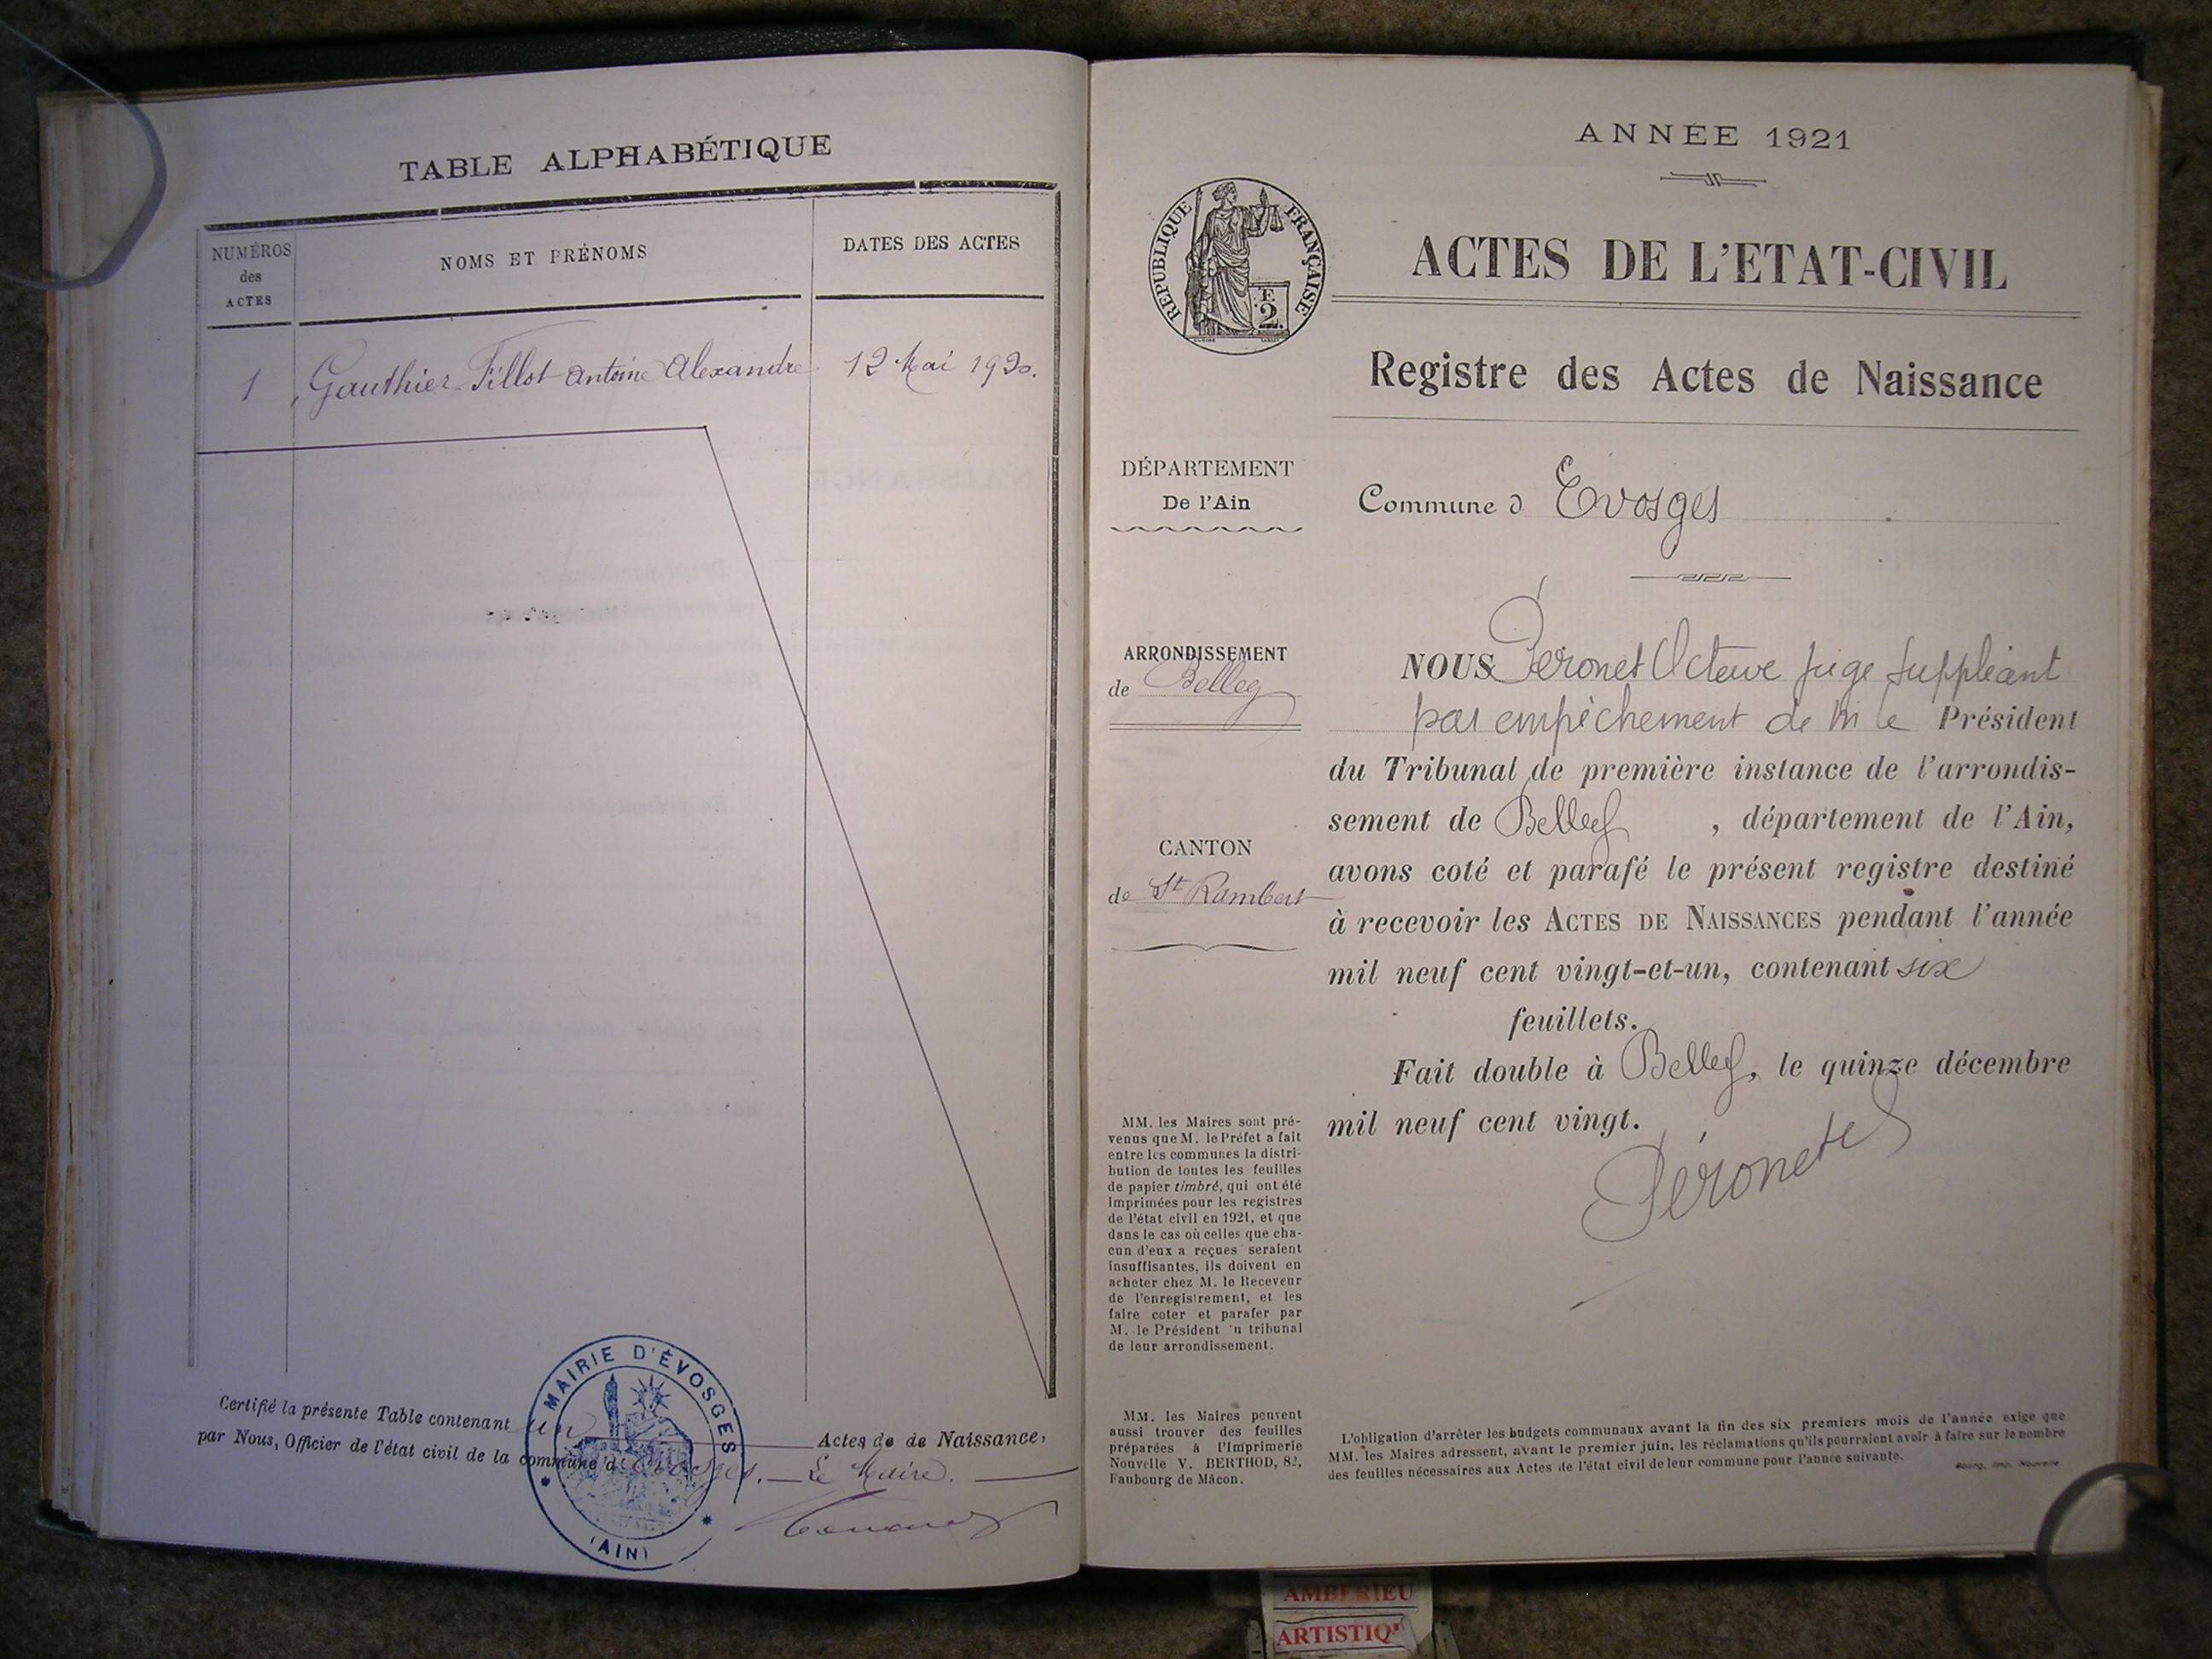 TABLE ALPHABÉTIQUE
NUMÉROS
des
ACTES
NOMS ET PRÉNOMS
DATES DES ACTES
1 Gauthier-Tillot Antoine Alexandre 12 Mai 1920.
Certifié la présente Table contenant un Actes de de Naissance,
par Nous, Officier de l'état civil de la commune d'Evosges. Le Maire.
MAIRIE D'ÉVOSGES
(AIN)
ANNÉE 1921
RÉPUBLIQUE FRANÇAISE
E
2
ACTES DE L'ETAT-CIVIL
Registre des Actes de Naissance
DÉPARTEMENT
De l'Ain
Commune d Evosges
ARRONDISSEMENT
de Belley
CANTON
de St Rambert
NOUS Péronet Octave juge suppléant
par empêchement de M le Président
du Tribunal de première instance de l'arrondis-
sement de Belley , département de l'Ain,
avons coté et parafé le présent registre destiné
à recevoir les ACTES DE NAISSANCES pendant l'année
mil neuf cent vingt-et-un, contenant six
feuillets.
Fait double à Belley, le quinze décembre
mil neuf cent vingt.
Péronet
MM. les Maires sont pré-
venus que M. le Préfet a fait
entre les communes la distri-
bution de toutes les feuilles
de papier timbré, qui ont été
imprimées pour les registres
de l'état civil en 1921, et que
dans le cas où celles que cha-
cun d'eux a reçues seraient
insuffisantes, ils doivent en
acheter chez M. le Receveur
de l'enregistrement, et les
faire coter et parafer par
M. le Président 'n tribunal
de leur arrondissement.
MM. les Maires peuvent
aussi trouver des feuilles
préparées à l'Imprimerie
Nouvelle V. BERTHOD, 82,
Faubourg de Mâcon.
L'obligation d'arrêter les budgets communaux avant la fin des six premiers mois de l'année exige que
MM. les Maires adressent, avant le premier juin, les réclamations qu'ils pourraient avoir à faire sur le nombre
des feuilles nécessaires aux Actes de l'état civil de leur commune pour l'année suivante.
Bourg, Imp. Nouvelle
AMBERIEU
ARTISTIQ